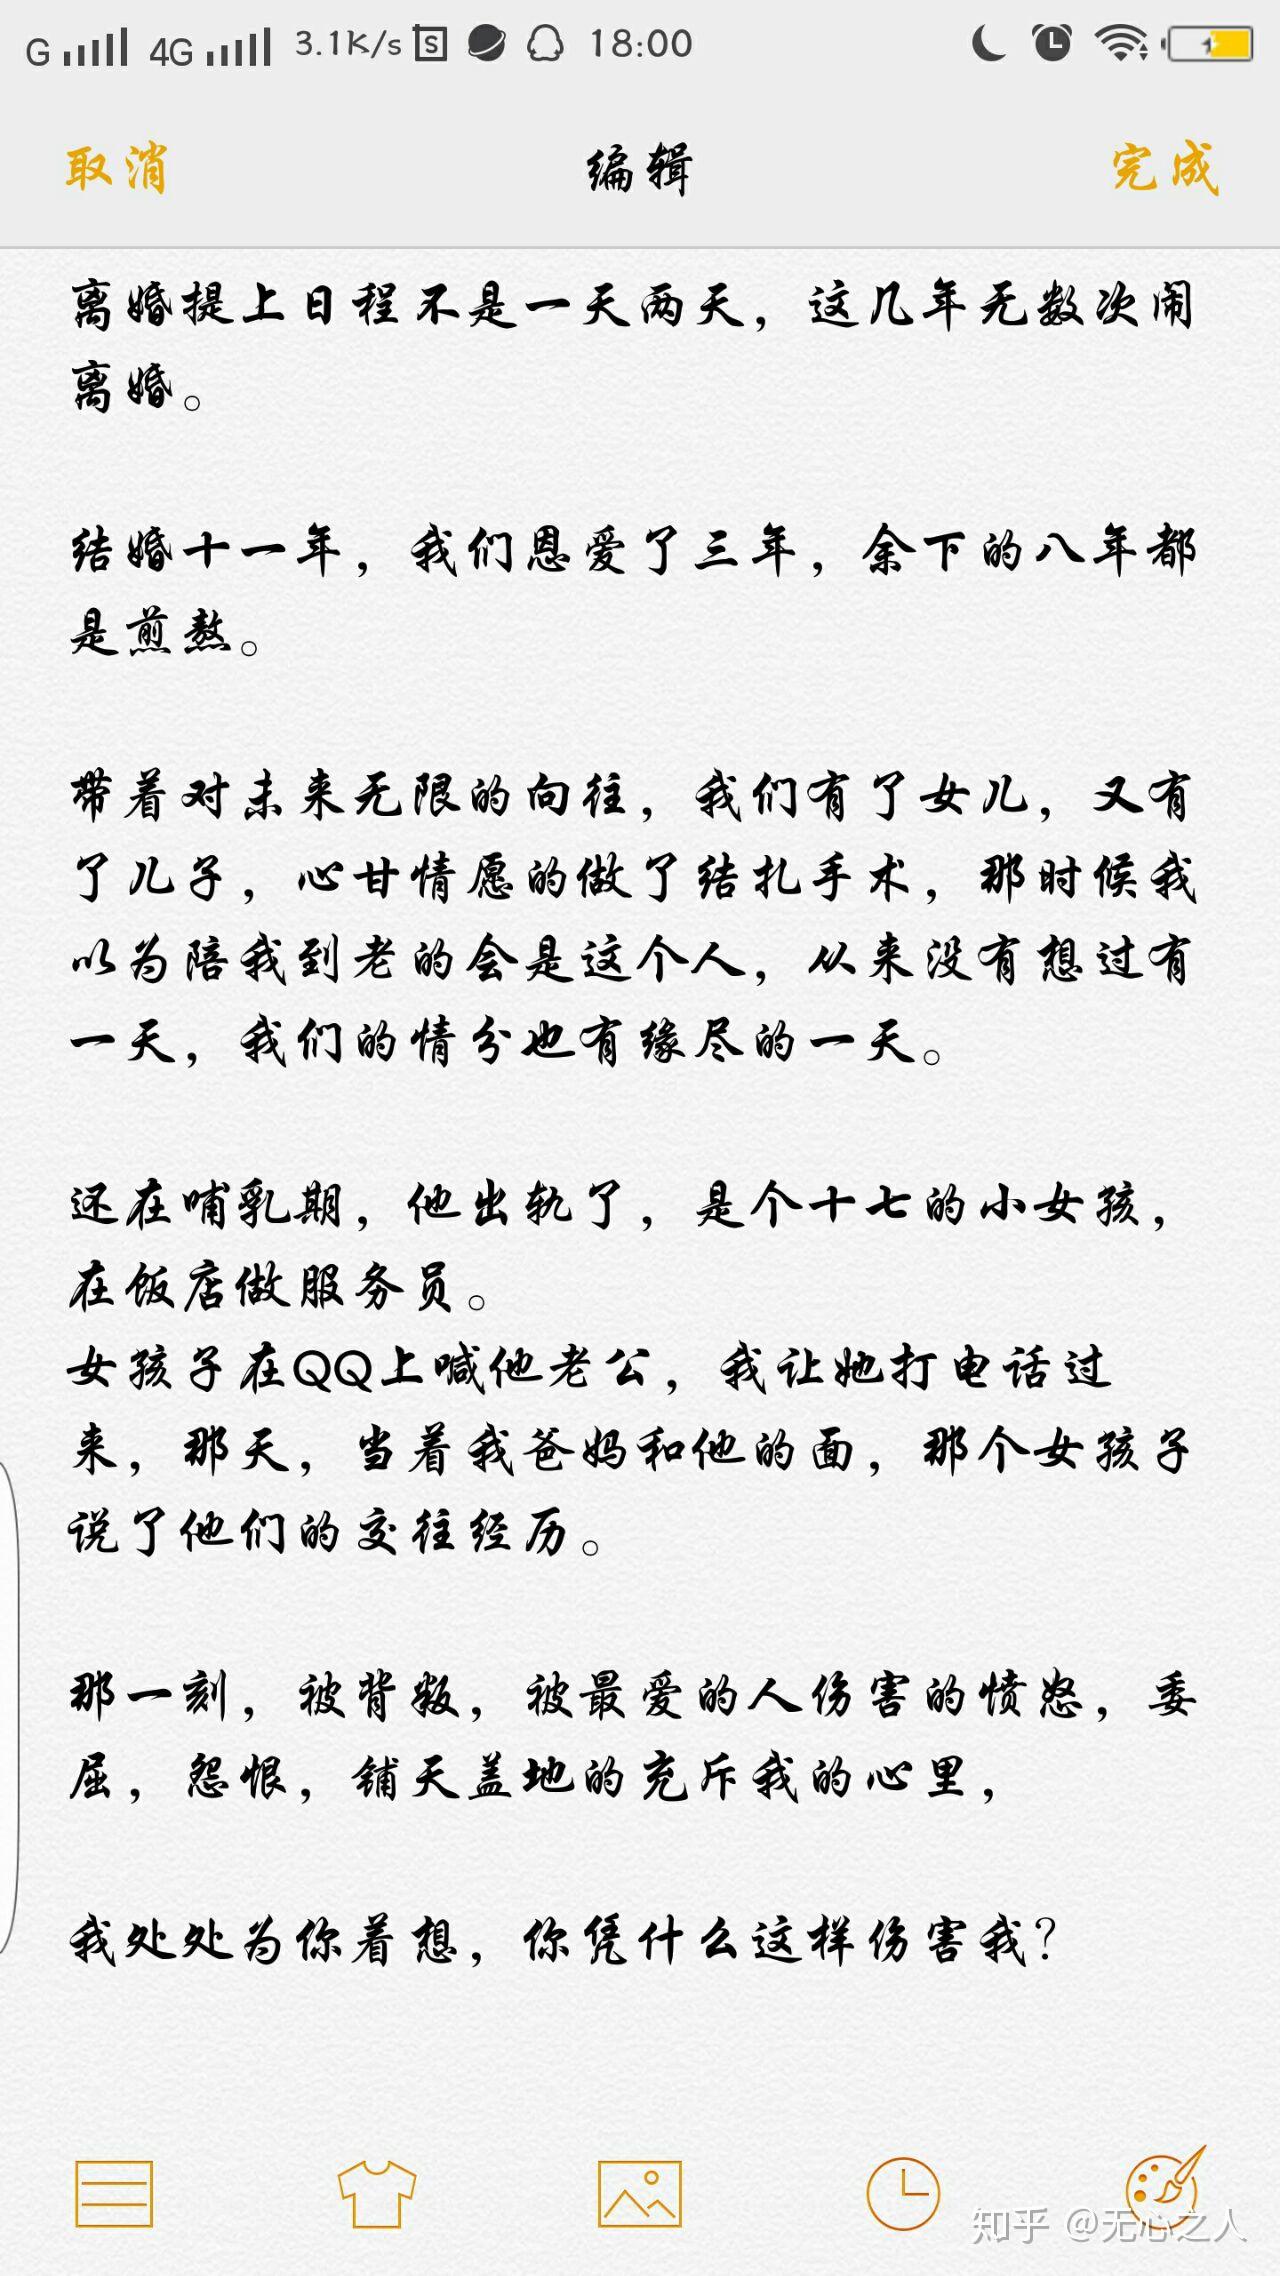 G 4G 3.1K/s S 18:00
取消 编辑 完成
离婚提上日程不是一天两天，这几年无数次闹
离婚。
结婚十一年，我们恩爱了三年，余下的八年都
是煎熬。
带着对未来无限的向往，我们有了女儿，又有
了儿子，心甘情愿的做了结扎手术，那时候我
以为陪我到老的会是这个人，从来没有想过有
一天，我们的情分也有缘尽的一天。
还在哺乳期，他出轨了，是个十七的小女孩，
在饭店做服务员。
女孩子在QQ上喊他老公，我让她打电话过
来，那天，当着我爸妈和他的面，那个女孩子
说了他们的交往经历。
那一刻，被背叛，被最爱的人伤害的愤怒，委
屈，怨恨，铺天盖地的充斥我的心里，
我处处为你着想，你凭什么这样伤害我？
知乎 @无心之人